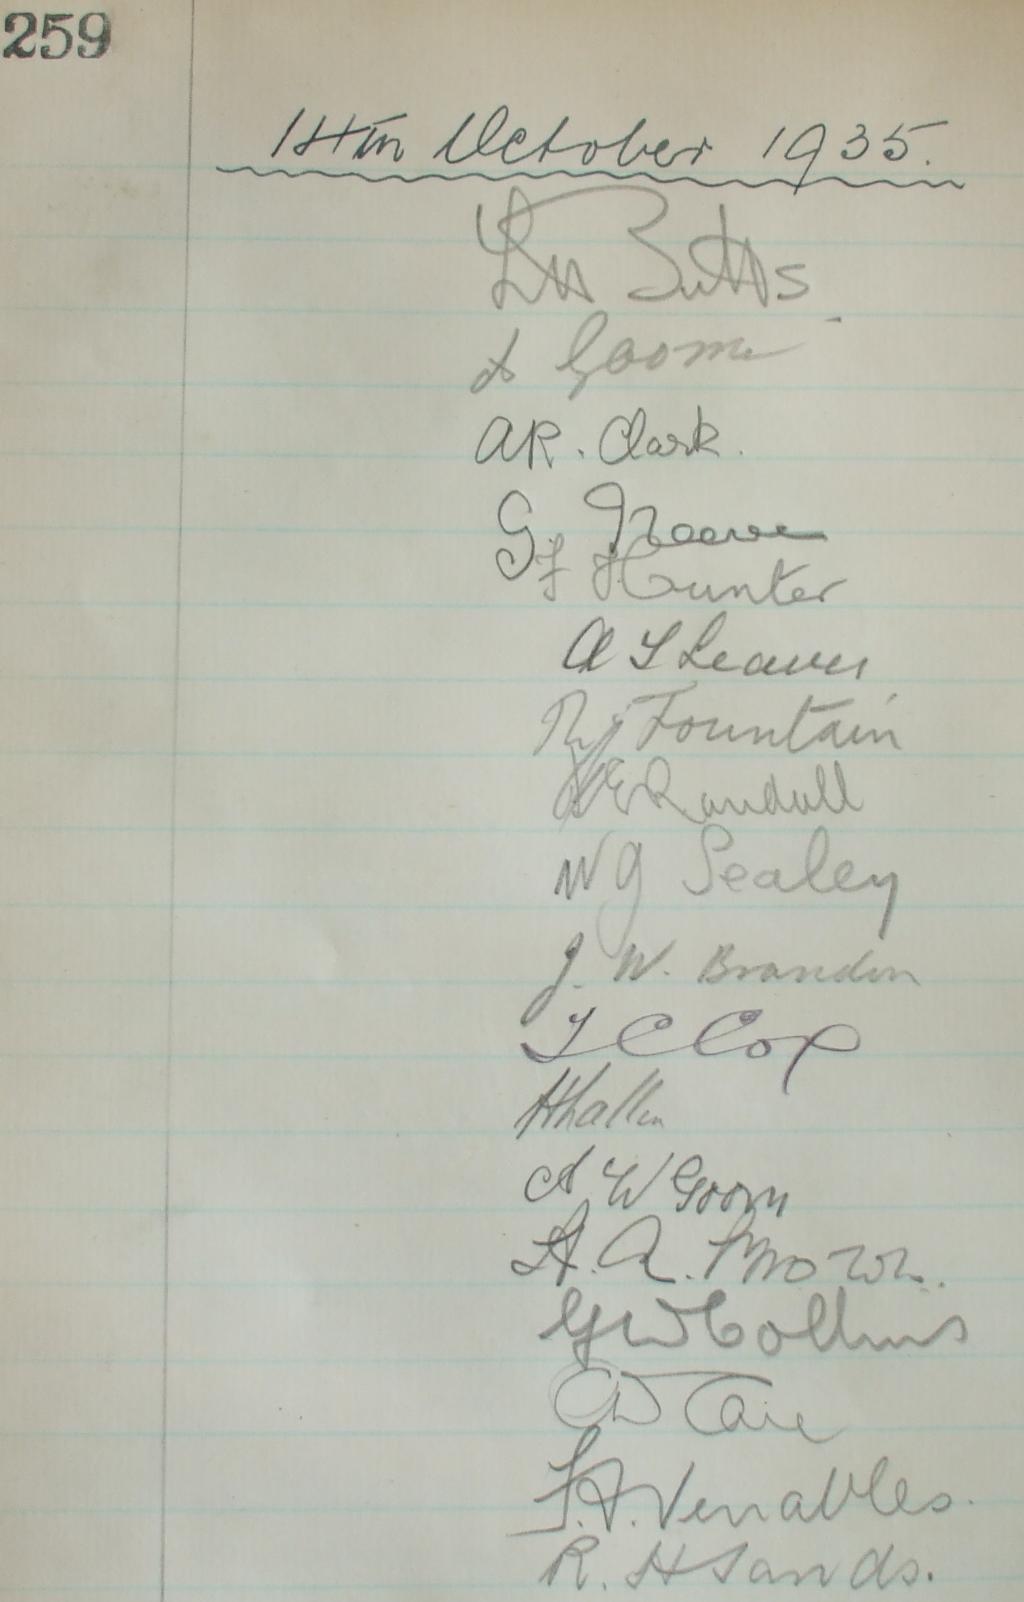 259
14th October 1935.
Butts
Goom
AR. Clark.
G. Neeve
F Hunter
A T Leaver
R J Fountain
E Randall
W G Sealey
J. W. Brandon
T C Cox
A W Goom
H. A. Brown.
G W Collins
C D Care
F. A. Venables.
R. H Sands.